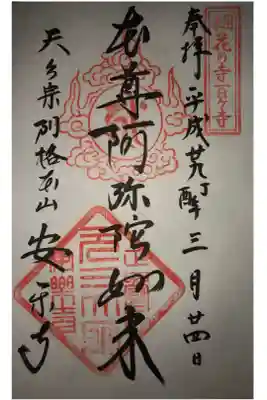 東国花の寺百ヶ寺
奉拝 平成廿九丁酉 三月廿四日
本尊阿弥陀如来
天台宗別格本山 安楽寺